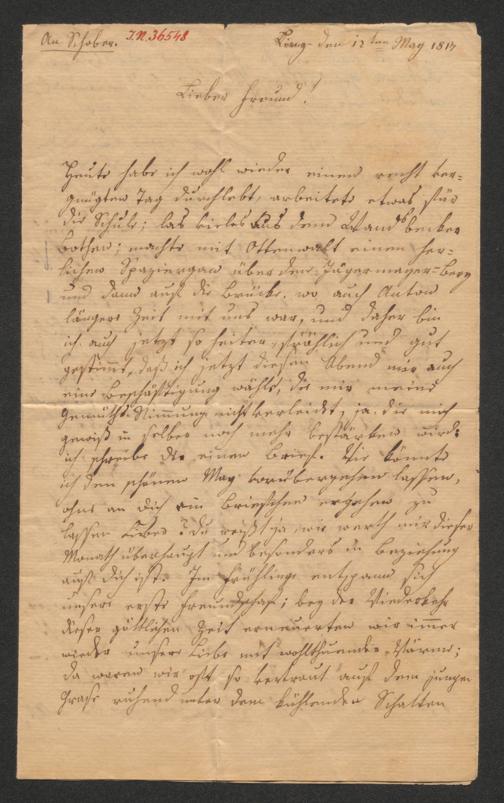 An Schober. I.N. 36548
Linz den 12ten May 1817
Lieber Freund!
Heute habe ich wohl wieder einen recht ver-
gnügten Tag durchlebt, arbeitete etwas für
die Schule; las vieles aus dem Wandsbecker
Bothen; machte mit Ottenwalt einen herr-
lichen Spaziergang über den Jägermayer-Berg
und dann auf die Brücke, wo auch Anton
längere Zeit mit uns war, und daher bin
ich auch jetzt so heiter, fröhlich und gut
gestimmt, daß ich jetzt diesen Abend mir auch
eine Beschäftigung wähle, die mir meine
Gemüths Stimmung nicht verleidet, ja, die mich
gewiß in selber noch mehr bestärken wird:
ich schreibe dir einen Brief. Wie könnte
ich den schönen May vorübergehen lassen,
ohne an Dich ein Briefchen ergehen zu
lassen Lieber? Du weißt ja, wie werth mir dieser
Monath überhaupt und besonders in Beziehung
auf Dich ist. Im Frühling entspann sich
unsere erste Freundschaft; bey der Wiederkehr
dieser göttlichen Zeit erneuerten wir immer
wieder unsere Liebe mit wohlthuender Wärme;
da waren wir oft so vertraut auf dem jungen
Grase ruhend unter dem kühlenden Schatten